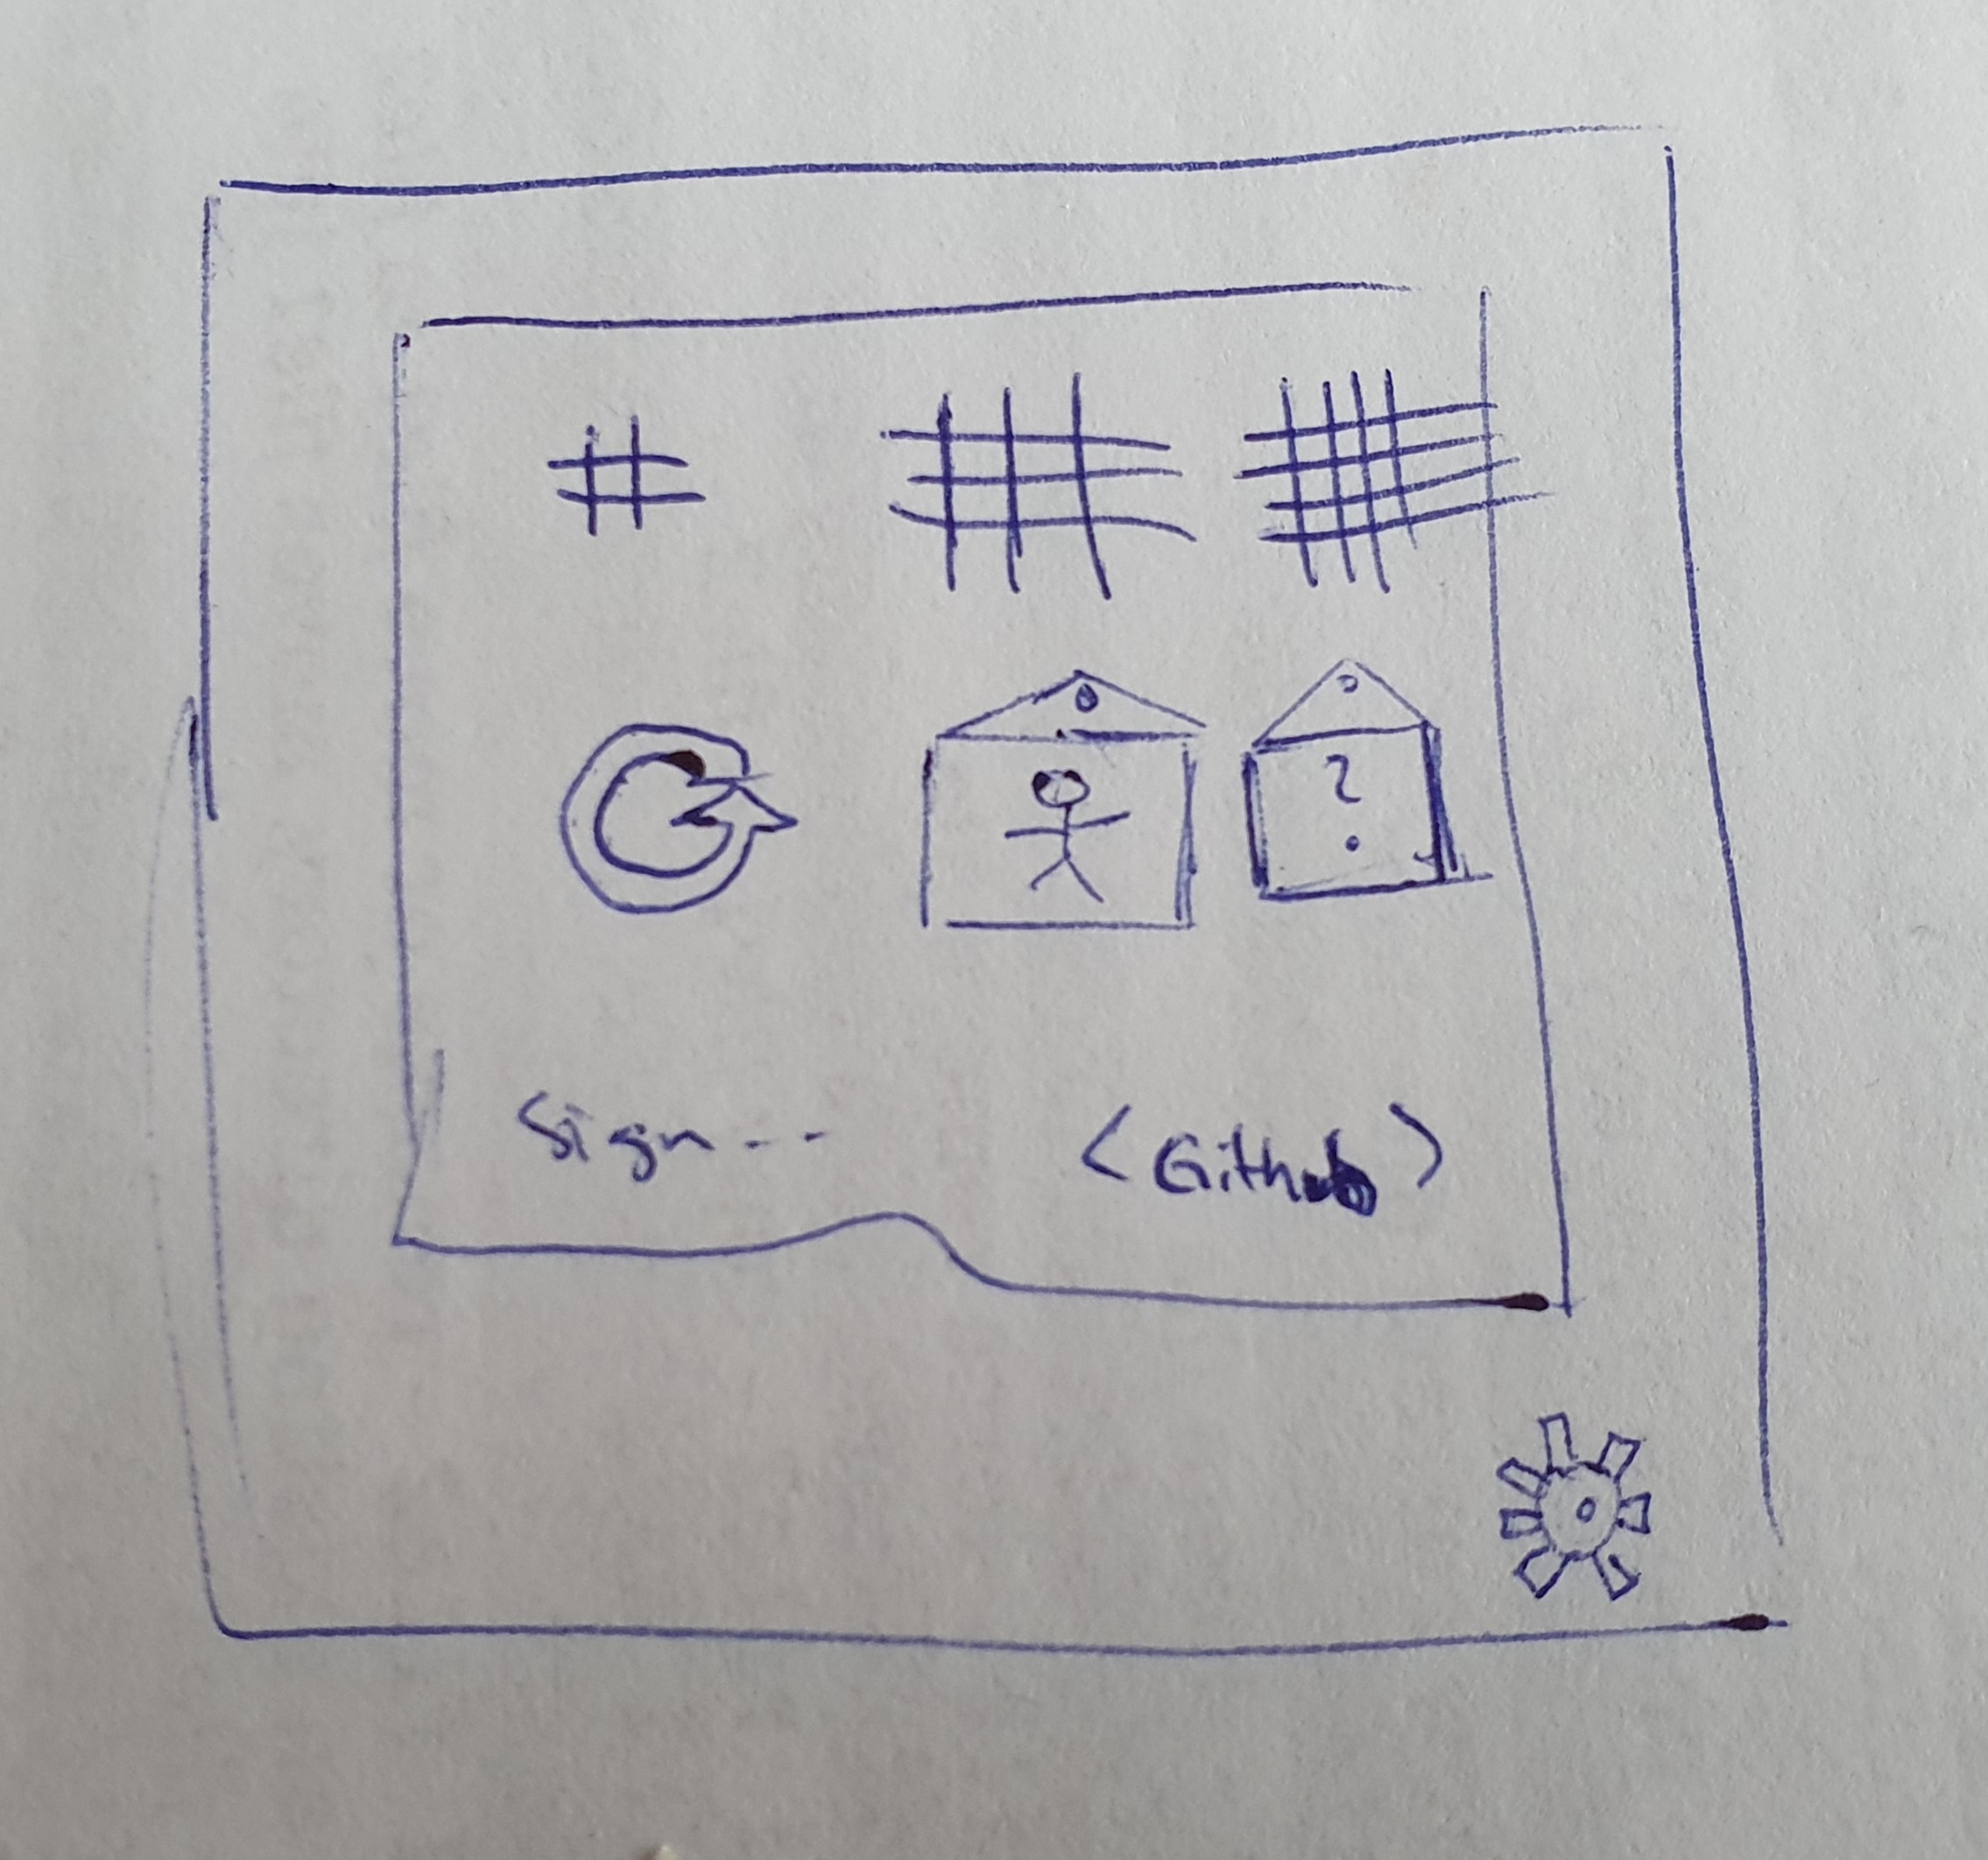 ?
Sign -- <Github>